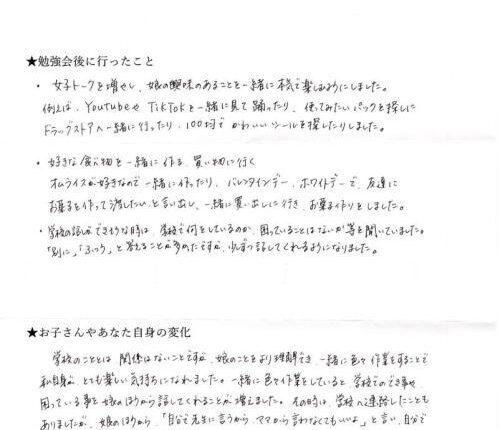 ★勉強会後に行ったこと
・女子トークを増やし、娘の興味のあることを一緒に本気で楽しむようにしました。
例えば、YoutubeやTikTokを一緒に見て踊ったり、使ってみたいパックを探しに
ドラッグストアへ一緒に行ったり、100均でかわいいシールを探したりしました。
・好きな食べ物を一緒に作る、買い物に行く
オムライスが好きなので一緒に作ったり、バレンタインデー、ホワイトデーで、友達に
お菓子を作って渡したいと言い出し、一緒に買い出しに行き、お菓子作りをしました。
・学校の話ができそうな時は、学校で何をしているのか、困っていることはないか等を聞いていました。
「別に」「ふつう」と答えることが多かたですが、少しずつ話してくれるようになりました。
★お子さんやあなた自身の変化
学校のこととは関係はないことですが、娘のことをより理解でき、一緒に色々作業をすることで
私自身が、とても楽しい気持ちになれました。一緒に色々作業をしていると、学校でのできごとや、
困っている事を娘のほうから話してくれることが増えました。その時は、学校へ連絡したことも
ありましたが、娘のほうから、「自分で先生に言うから、ママから言わなくてもいいよ」と言い、自分で